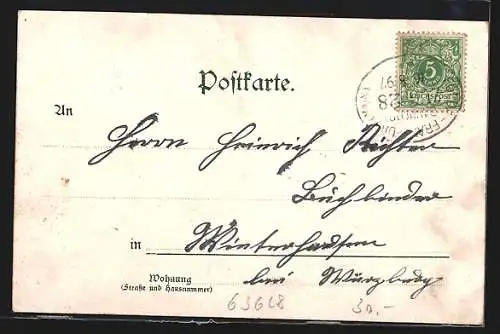 Postkarte.
5
REICHSPOST
97
28
An
Herrn Heinrich Richter
Buchbinder
in Winterhausen
bei Würzburg
Wohnung
(Straße und Hausnummer)
63628
30.-